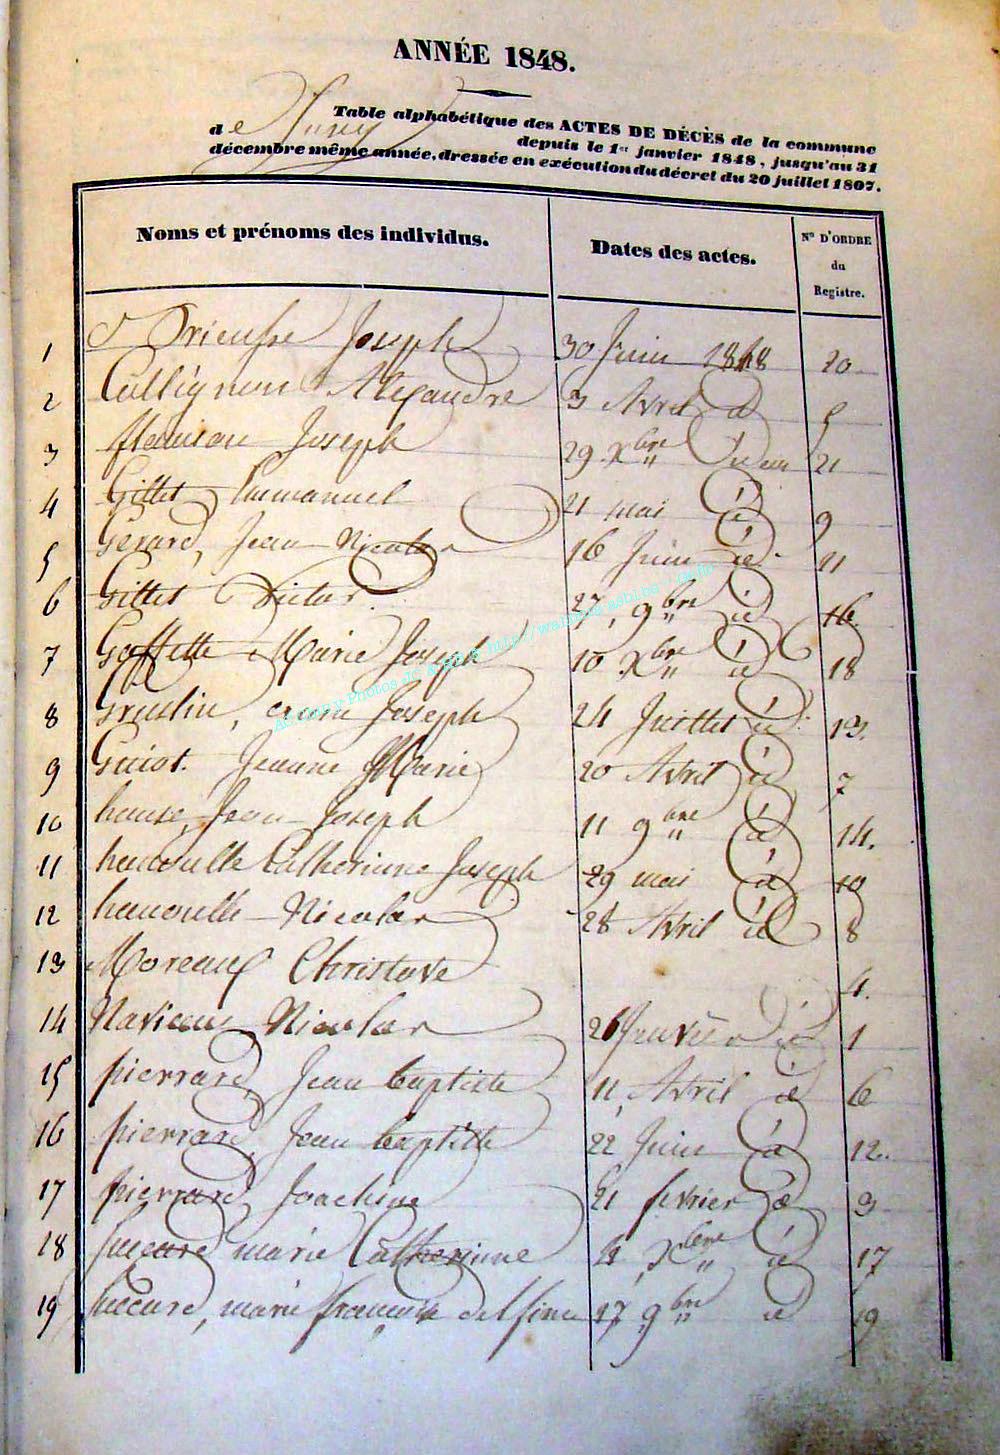 ANNÉE 1848.
Table alphabétique des ACTES DE DÉCÈS de la commune
de depuis le 1er janvier 1848, jusqu'au 31
décembre même année, dressée en exécution du décret du 20 juillet 1807.
Noms et prénoms des individus. Dates des actes. Nos D'ORDRE
du
Registre.
1 Joseph 30 Juin 1848 20
2 Collignon Alexandre 3 Avril id 5
3 Joseph 29 Xbre idem 21
4 Gillet Emmanuel 21 mai id 9
5 Gerard, Jean Nicolas 16 Juin id 11
6 Gillet Victor 27, 9bre id 16
7 Goffette Marie Joseph 10 Xbre id 18
8 Joseph 24 Juillet id 13.
9 Guiot. Jeanne Marie 20 Avril id 7
10 Jean Joseph 11 9bre id 14.
11 hanoulle Catherinne Joseph 29 mai id 10
12 hanoulle Nicolas 28 Avril id 8
13 Moreaux Christove 4.
14 Nicolas 26 Janvier id 1
15 pierrard, Jean baptiste 11, Avril id 6
16 pierrard, Jean baptiste 22 Juin id 12.
17 pierrard, Joachim 21 fevrier id 3
18 marie Catherinne Xbre id 17
19 marie francoise delfine 17, 9bre id 19